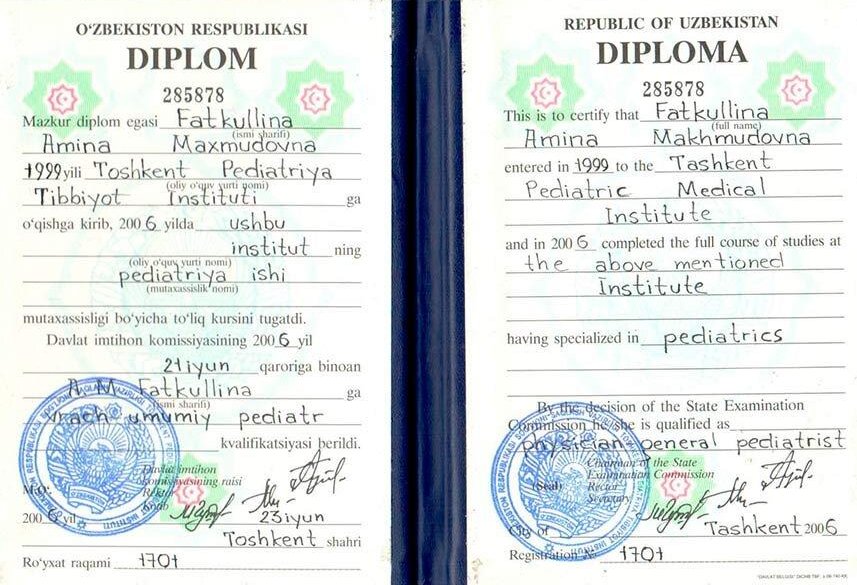 O‘ZBEKISTON RESPUBLIKASI
DIPLOM
285878
Mazkur diplom egasi Fatkullina
(ismi sharifi)
Amina Maxmudovna
1999 yili Toshkent Pediatriya
(oliy o‘quv yurti nomi)
Tibbiyot Instituti ga
o‘qishga kirib, 2006 yilda ushbu
institut ning
(oliy o‘quv yurti nomi)
pediatriya ishi
(mutaxassislik nomi)
mutaxassisligi bo‘yicha to‘liq kursini tugatdi.
Davlat imtihon komissiyasining 2006 yil
21 iyun qaroriga binoan
A.M. Fatkullina ga
(ismi sharifi)
vrach umumiy pediatr
kvalifikatsiyasi berildi.
Davlat imtihon
komissiyasining raisi
Rektor
Kotib
M.O‘.
2006 yil 23 iyun
Toshkent shahri
Ro‘yxat raqami 1701
REPUBLIC OF UZBEKISTAN
DIPLOMA
285878
This is to certify that Fatkullina
(full name)
Amina Makhmudovna
entered in 1999 to the Tashkent
Pediatric Medical
Institute
and in 2006 completed the full course of studies at
the above mentioned
Institute
having specialized in pediatrics
By the decision of the State Examination
Commission he/she is qualified as
physician general pediatrist
Chairman of the State
Examination Commission
(Seal) Rector
Secretary
City of Tashkent 2006
Registration No. 1701